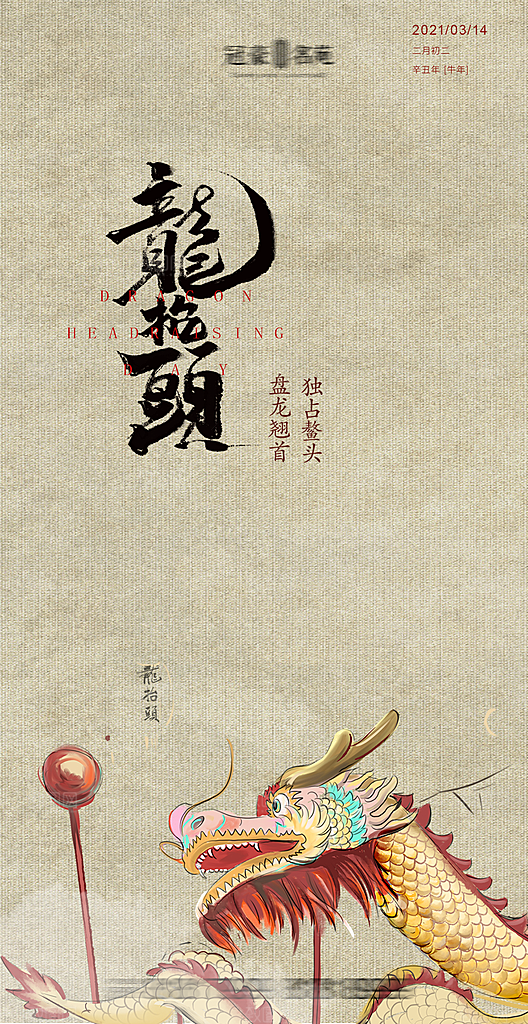 2021/03/14
二月初二
辛丑年 [牛年]
龍抬頭
DRAGON
HEADRAISING
DAY
独占鳌头
盘龙翘首
龍抬頭